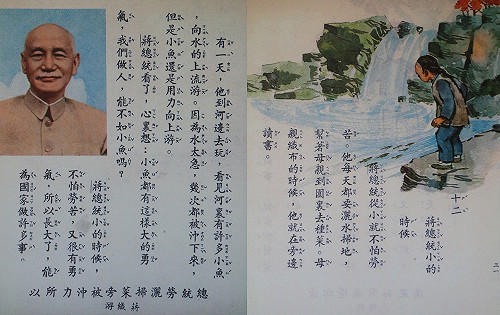 十二
蔣總統小的
時候
蔣總統從小就不怕勞
苦。他每天都要灑水掃地，
幫著母親到園裏去種菜。母
親織布的時候，他就在旁邊
讀書。
有一天，他到河邊去玩，看見河裏有許多小魚
，向水的上流游。因為水太急，幾次都被沖下來，
但是小魚還是用力向上游。
蔣總統看了，心裏想：小魚都有這樣大的勇
氣，我們做人，能不如小魚嗎？
蔣總統小的時候，
不怕勞苦，又很有勇
氣，所以長大了，能
為國家做許多事。
總統勞灑掃菜旁被沖力所以
蔣織游